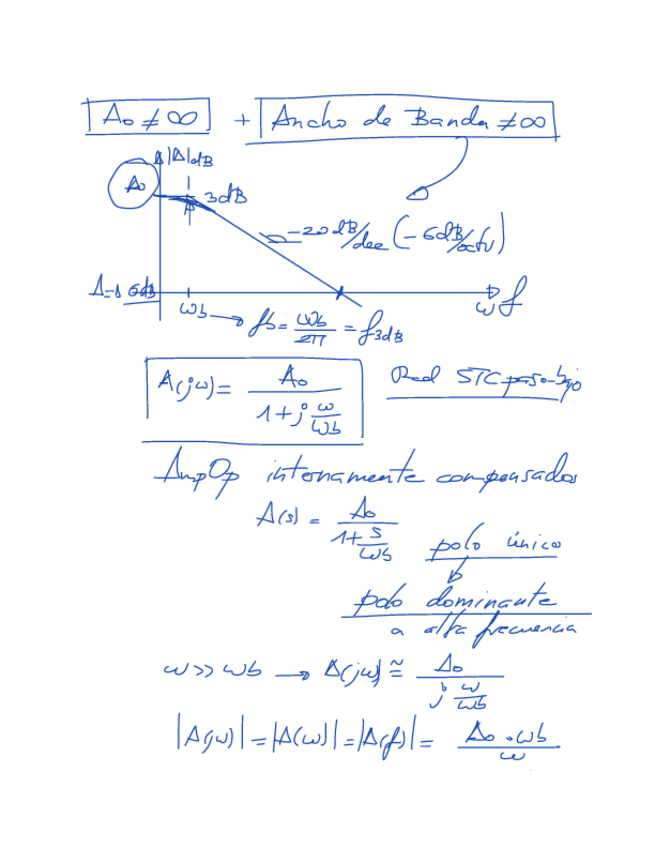 A₀ ≠ ∞ + Ancho de Banda ≠ ∞
|A|dB
A₀ 3dB
-20dB/dec (-6dB/octv)
A=1 0dB ω f
ωb → fb = ωb/2π = f3dB
A(jω) = A₀/(1+j ω/ωb) Red STC paso-bajo
AmpOp internamente compensados
A(s) = A₀/(1+s/ωb) polo único
polo dominante
a alta frecuencia
ω >> ωb → A(jω) ≅ A₀/(j ω/ωb)
|A(jω)| = |A(ω)| = |A(f)| = A₀·ωb/ω